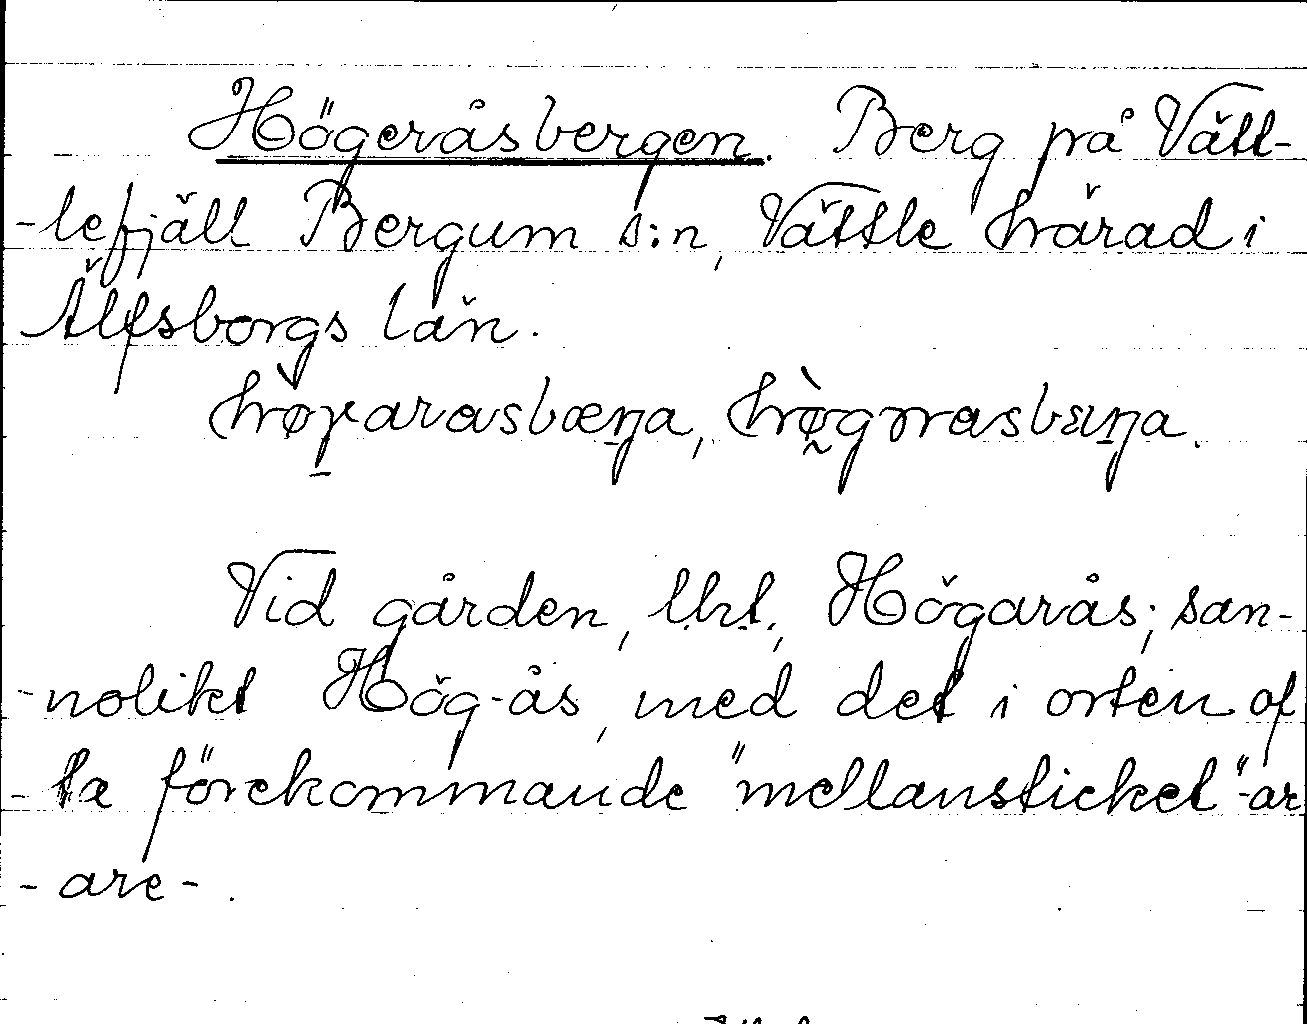 Högeråsbergen. Berg på Vätt-
-lefjäll Bergum s:n, Vättle härad i
Älfsborgs län.
Vid gården, lht, Högarås; san-
-nolikt Hög-ås, med det i orten of
ta förekommande "mellansticket" -ar
-are-.